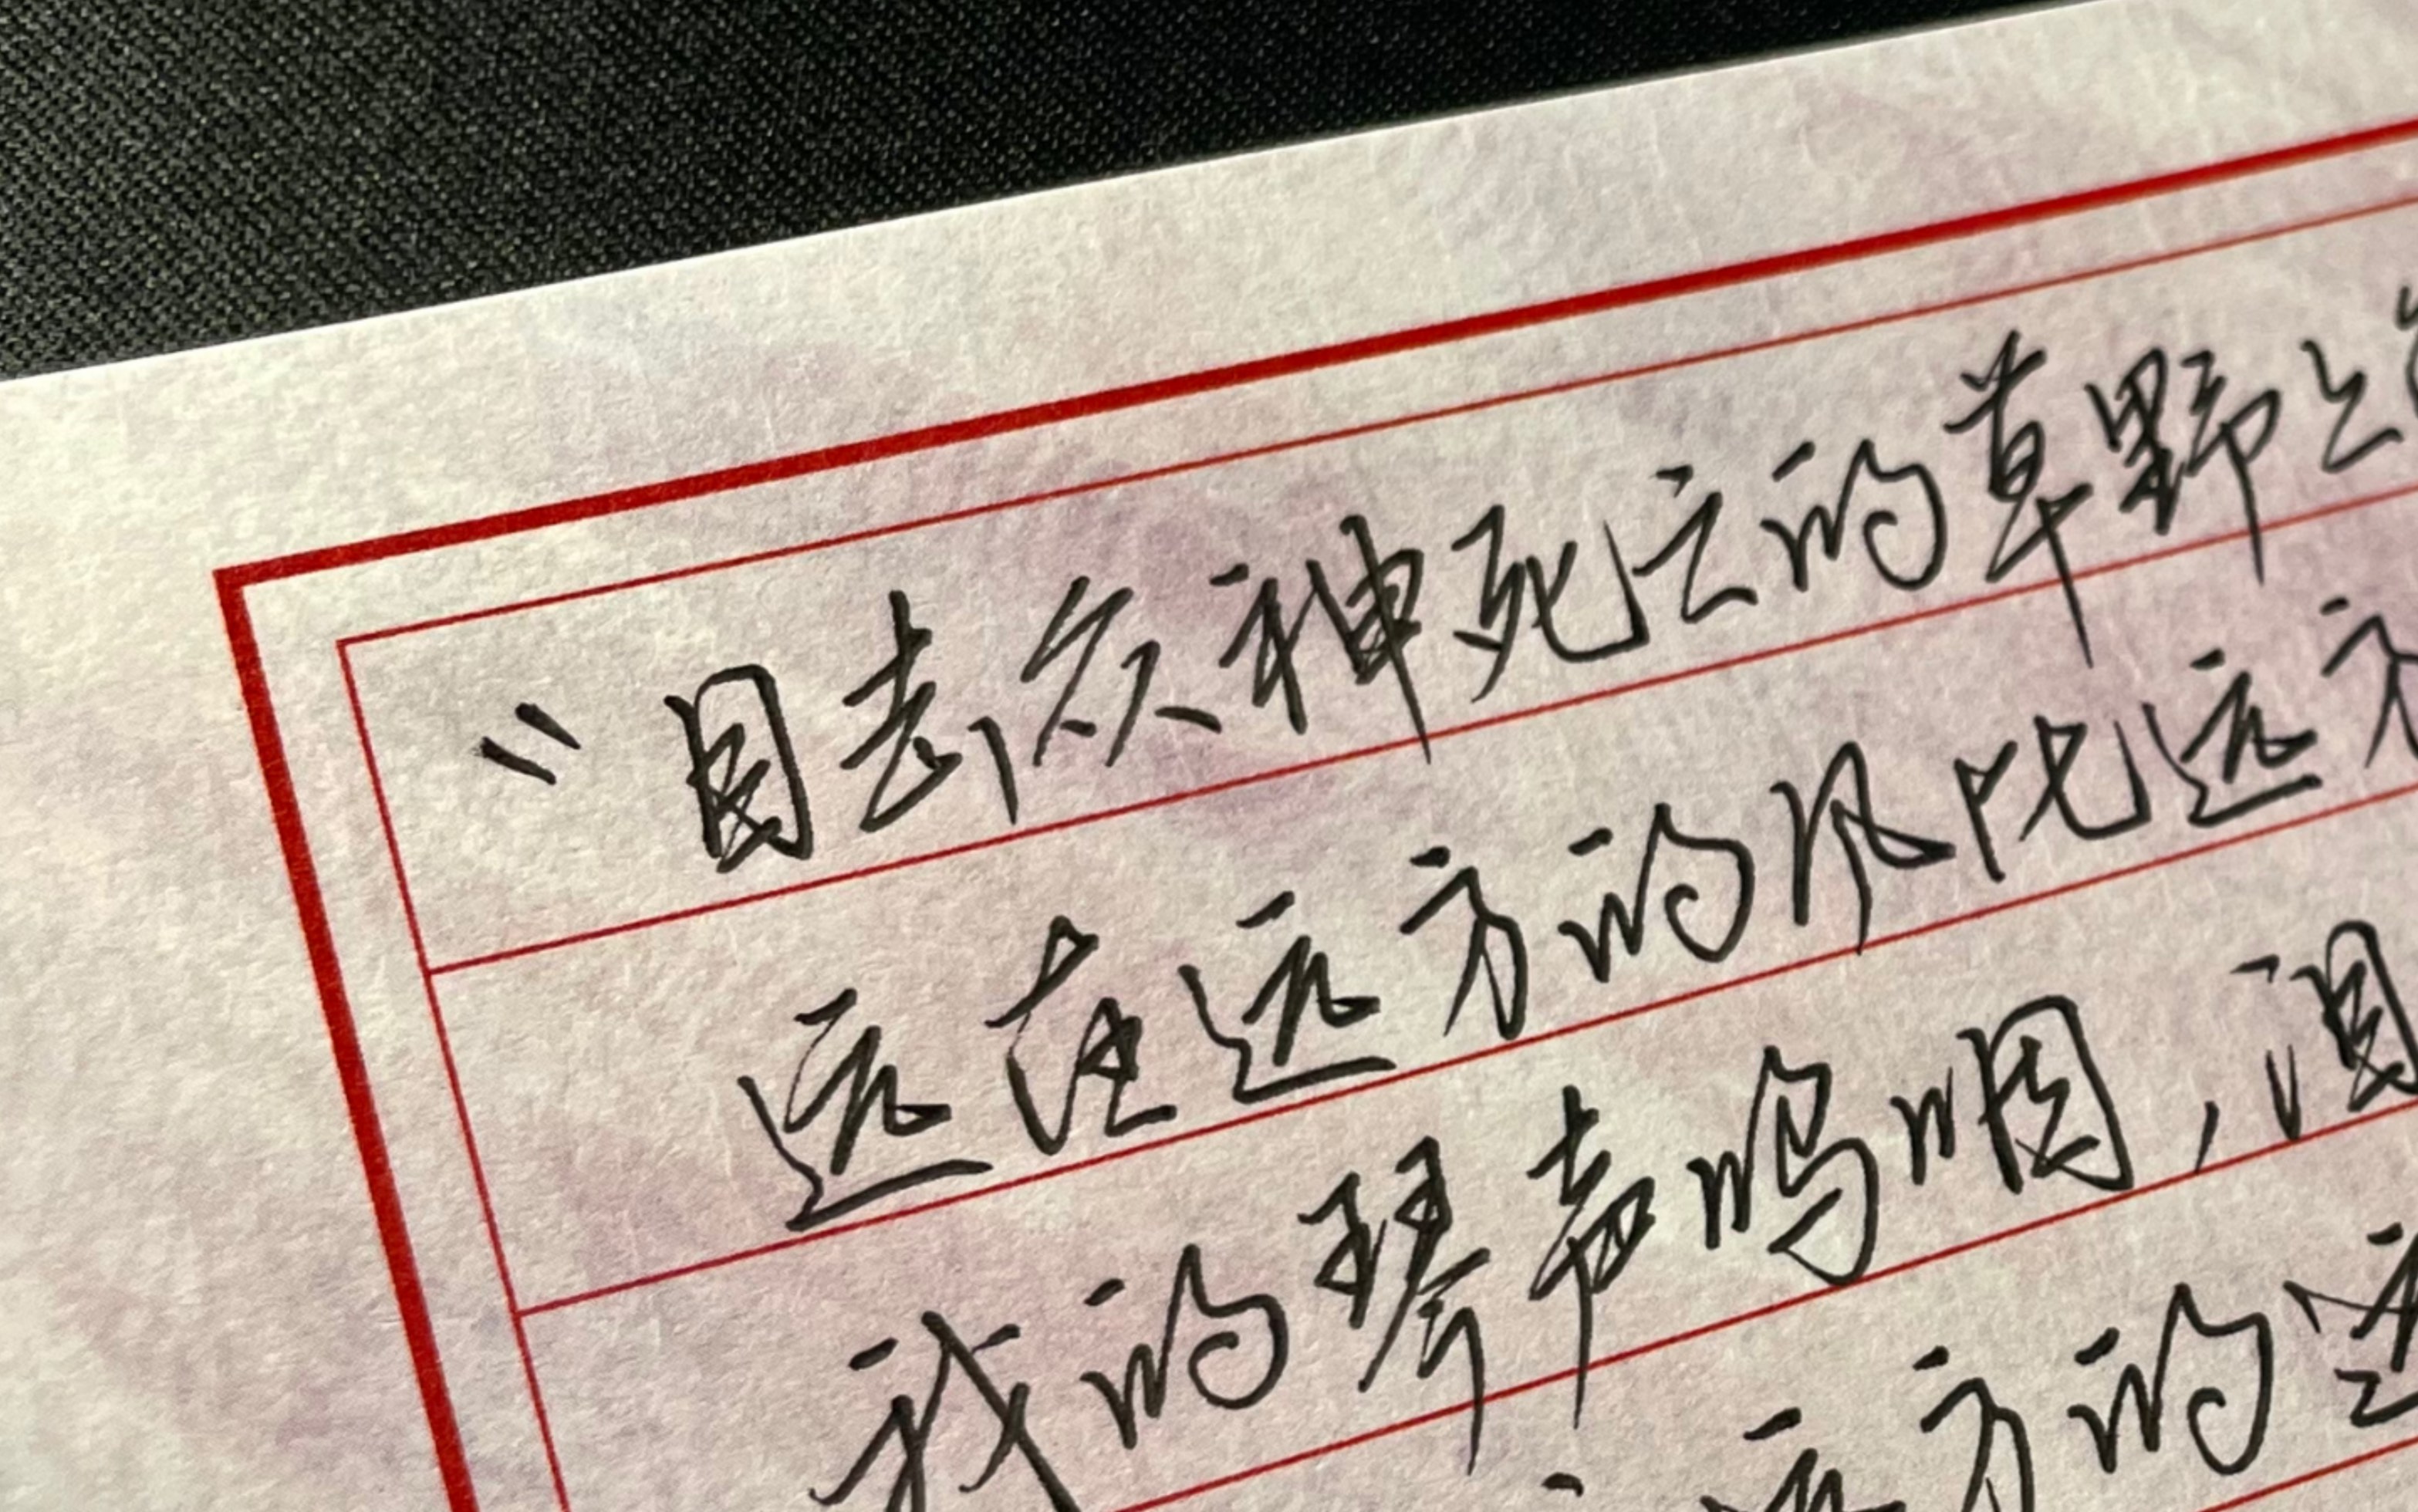 "目击众神死亡的草野上
远在远方的风比远方
我的琴声呜咽,泪
远方的远